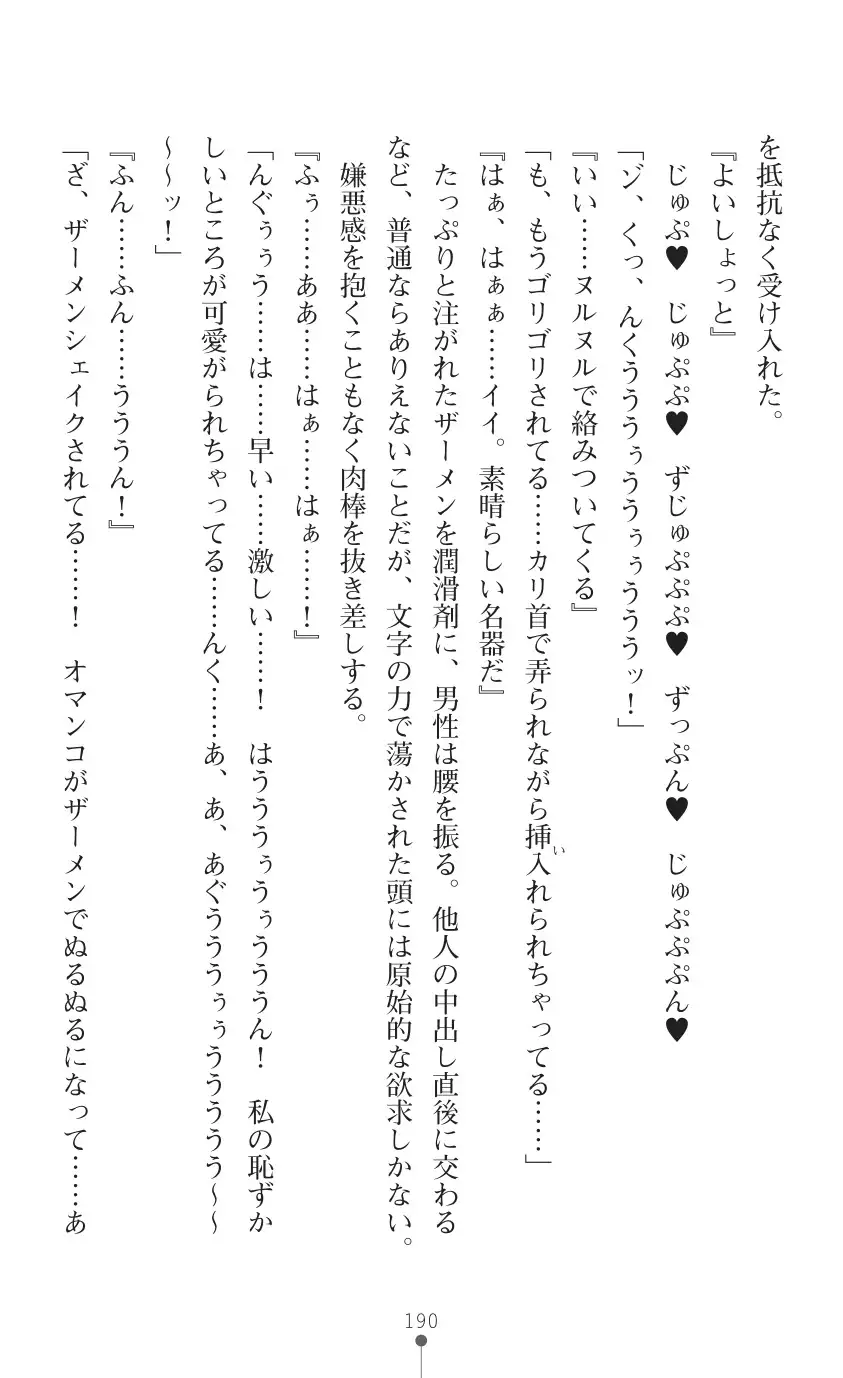 を抵抗なく受け入れた。
『よいしょっと』
じゅぷ♥　じゅぷぷ♥　ずじゅぷぷぷ♥　ずっぷん♥　じゅぷぷぷん♥
「ゾ、くっ、んくうううぅううぅぅうううッ！」
『いい……ヌルヌルで絡みついてくる』
「も、もうゴリゴリされてる……カリ首で弄られながら挿入れられちゃってる……」
い
『はぁ、はぁぁ……イイ。素晴らしい名器だ』
たっぷりと注がれたザーメンを潤滑剤に、男性は腰を振る。他人の中出し直後に交わる
など、普通ならありえないことだが、文字の力で蕩かされた頭には原始的な欲求しかない。
嫌悪感を抱くこともなく肉棒を抜き差しする。
『ふぅ……ああ……はぁ……はぁ……！』
「んぐぅぅう……は……早い……激しい……！　はうううぅうぅうううん！　私の恥ずか
しいところが可愛がられちゃってる……んく……あ、あ、あぐうううぅぅううううう～～
～～ッ！」
『ふん……ふん……うううん！』
「ざ、ザーメンシェイクされてる……！　オマンコがザーメンでぬるぬるになって……あ
190